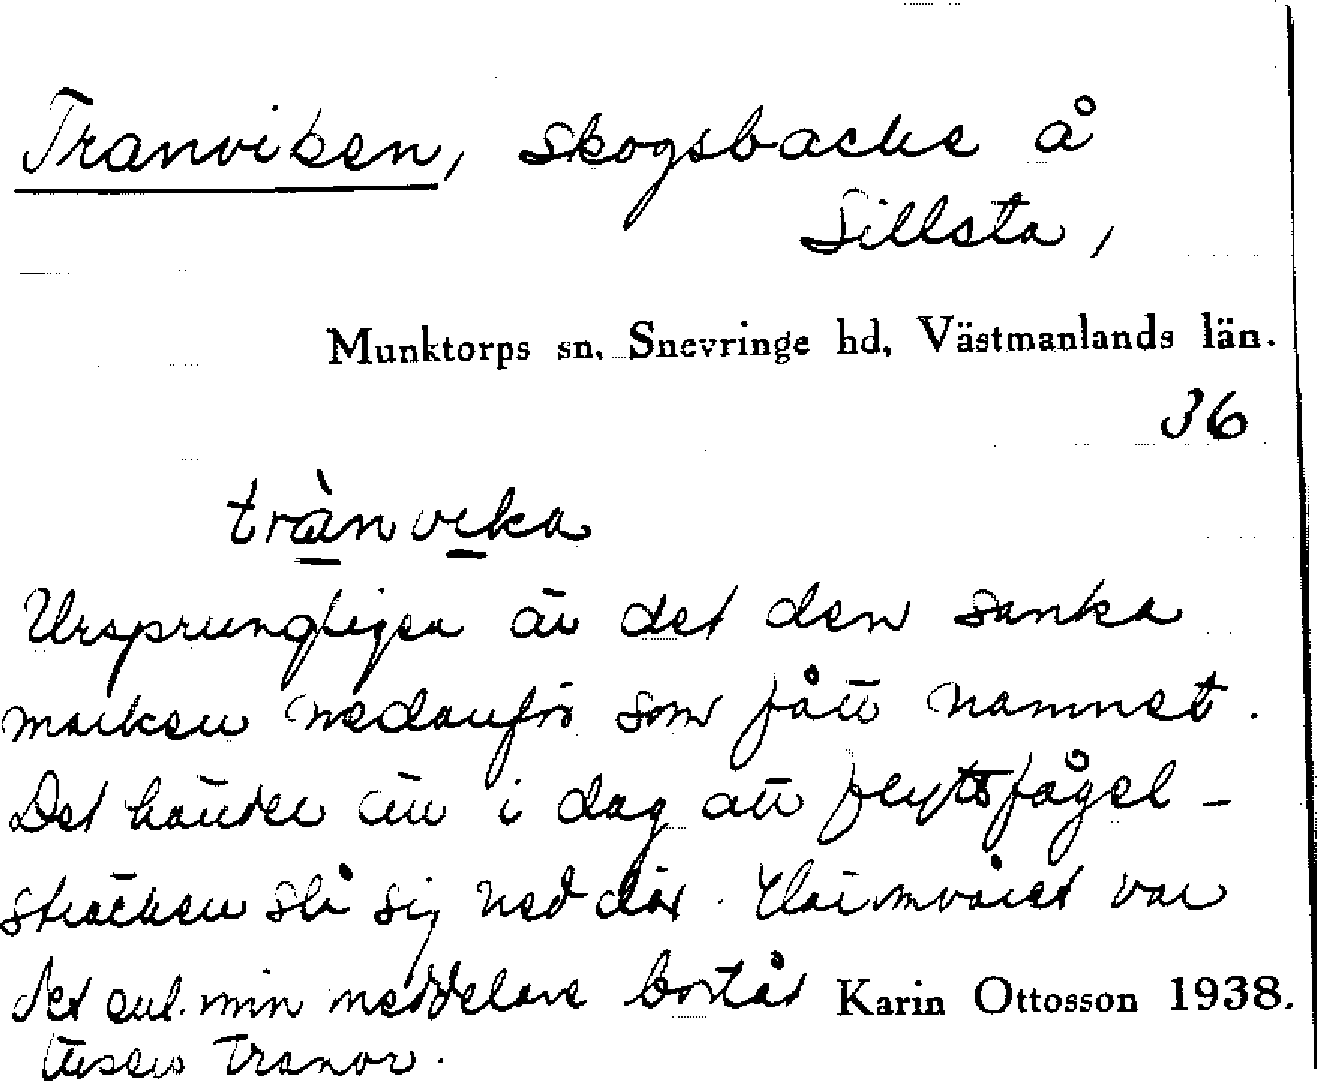 Tranviken, skogsbacke å
Sillsta,
Munktorps sn, Snevringe hd, Västmanlands län.
36
trànvika
Ursprungligen är det den sanka
marken nedanför som fått namnet.
Det händer än i dag att flyttfågel-
sträcken slå sig ned där. var
det enl. min meddelare Karin Ottosson 1938.
tranor.